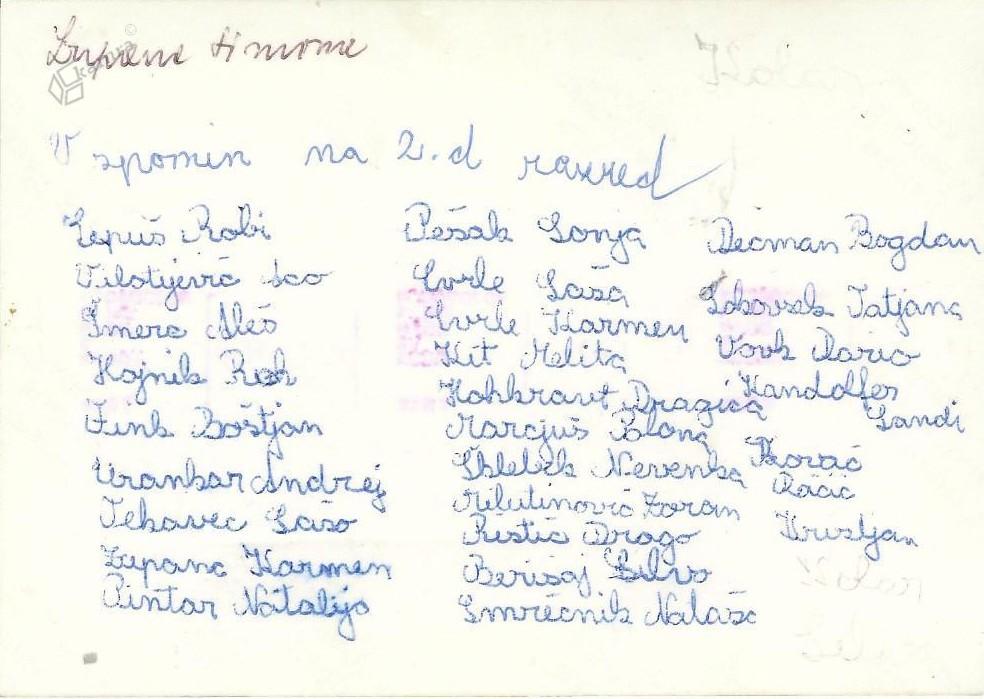 Zupanc Simona
V spomin na 2.d razred
Lepuš Robi
Vilotijević Aco
Šmerc Aleš
Hojnik Rok
Fink Boštjan
Urankar Andrej
Tekavec Sašo
Zupanc Karmen
Pintar Natalija
Pešak Sonja
Cvrle Saša
Cvrle Karmen
Kit Melita
Kohkraut Dragica
Marcjuš Polona
Sklebek Nevenka
Milutinović Zoran
Ristić Drago
Berisaj Silvo
Smrečnik Nataša
Decman Bogdan
Lokovšek Tatjana
Vovk Dario
Kandolfer
Sandi
Kovač
Račič
Kristjan